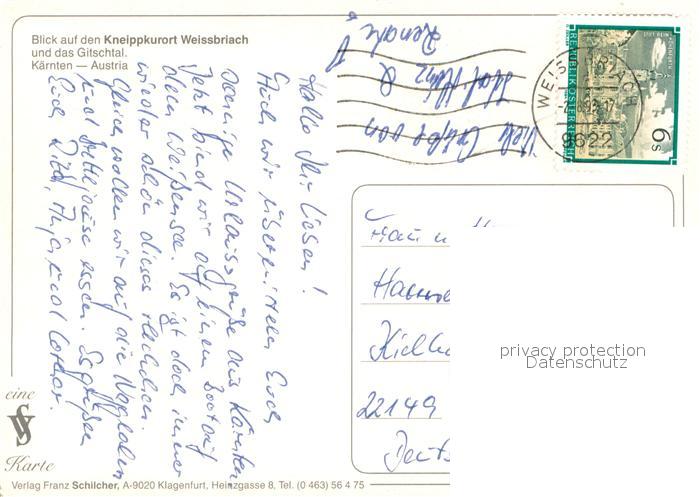 Blick auf den Kneippkurort Weissbriach
und das Gitschtal.
Kärnten — Austria
Hallo Ihr Lieben!
Auch wir übermitteln Euch
sonnige Urlaubsgrüße aus Kärnten.
Jetzt sind wir auf einem Boot auf
dem Weißensee. Es ist doch immer
wieder schön dieses
Gleich wollen wir auf die
und Brettljause essen. Es grüßen
Euch
Viele Grüße von
Karl Heinz &
Renate
WEISSBRIACH
9622
REPUBLIK ÖSTERREICH
6 S
STIFT REIN-
Frau u. H
Hanne
Kielk
22149
Deuts
privacy protection
Datenschutz
eine
VS
Karte
Verlag Franz Schilcher, A-9020 Klagenfurt, Heinzgasse 8, Tel. (0 463) 56 4 75